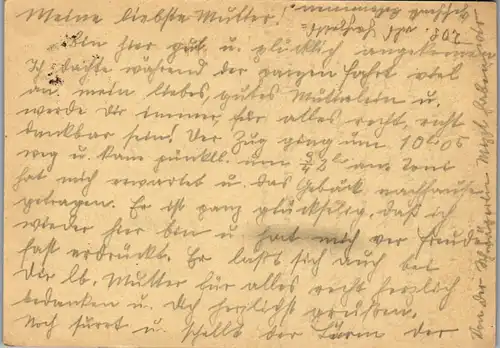 Meine liebste Mutter!
Bin hier gut u. glücklich angekommen.
Ich dachte während der ganzen Fahrt viel
an mein liebes, gutes Mütterlein u.
werde Dir immer für alles recht, recht
dankbar sein! Der Zug ging um 10h05
weg u. kam pünktl. um an. Toni
hat mich erwartet u. das Gepäck nachhause
getragen. Er ist ganz glückselig, daß ich
wieder hier bin u. hat mich vor Freude
fast erdrückt. Er läßt sich auch bei
Dir lb. Mutter für alles recht herzlich
bedanken u. Dich herzlichst grüßen.
Noch surrt u. schellt der Lärm der
Von der Schwägerin Mizzi haben wir